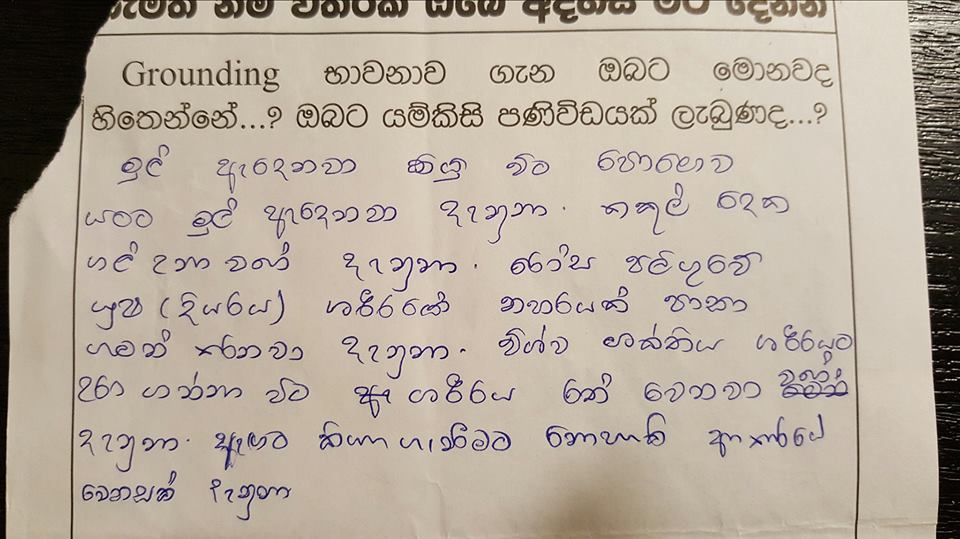 කැමති නම් විතරක් ඔබේ අදහස් මට දෙන්න
Grounding භාවනාව ගැන ඔබට මොනවද
හිතෙන්නේ...? ඔබට යම්කිසි පණිවිඩයක් ලැබුණද...?
මුල් ඇදෙනවා කියූ විට පොළොව
යටට මුල් ඇදෙනවා දැනුනා. කකුල් දෙක
ගල් උනා වගේ දැනුනා. රෝස පලිඟුවේ
යුෂ (දියරය) ශරීරයේ නහරයක් පාසා
ගමන් කරනවා දැනුනා. විශ්ව ශක්තිය ශරීරයට
උරා ගන්නා විට ශරීරය රත් වෙනවා වගේ
දැනුනා. ඇඟට කියාගැනීමට නොහැකි ආකාරයේ
වෙනසක් දැනුනා